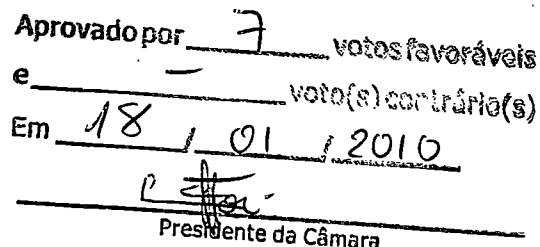 Aprovado por 7 votos favoráveis
e - voto(s) contrário(s)
Em 18 / 01 / 2010
Presidente da Câmara